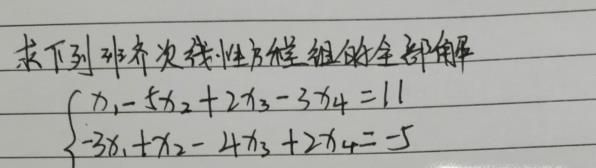 求下列非齐次线性方程组的全部解
x₁-5x₂+2x₃-3x₄=11
-3x₁+x₂-4x₃+2x₄=-5